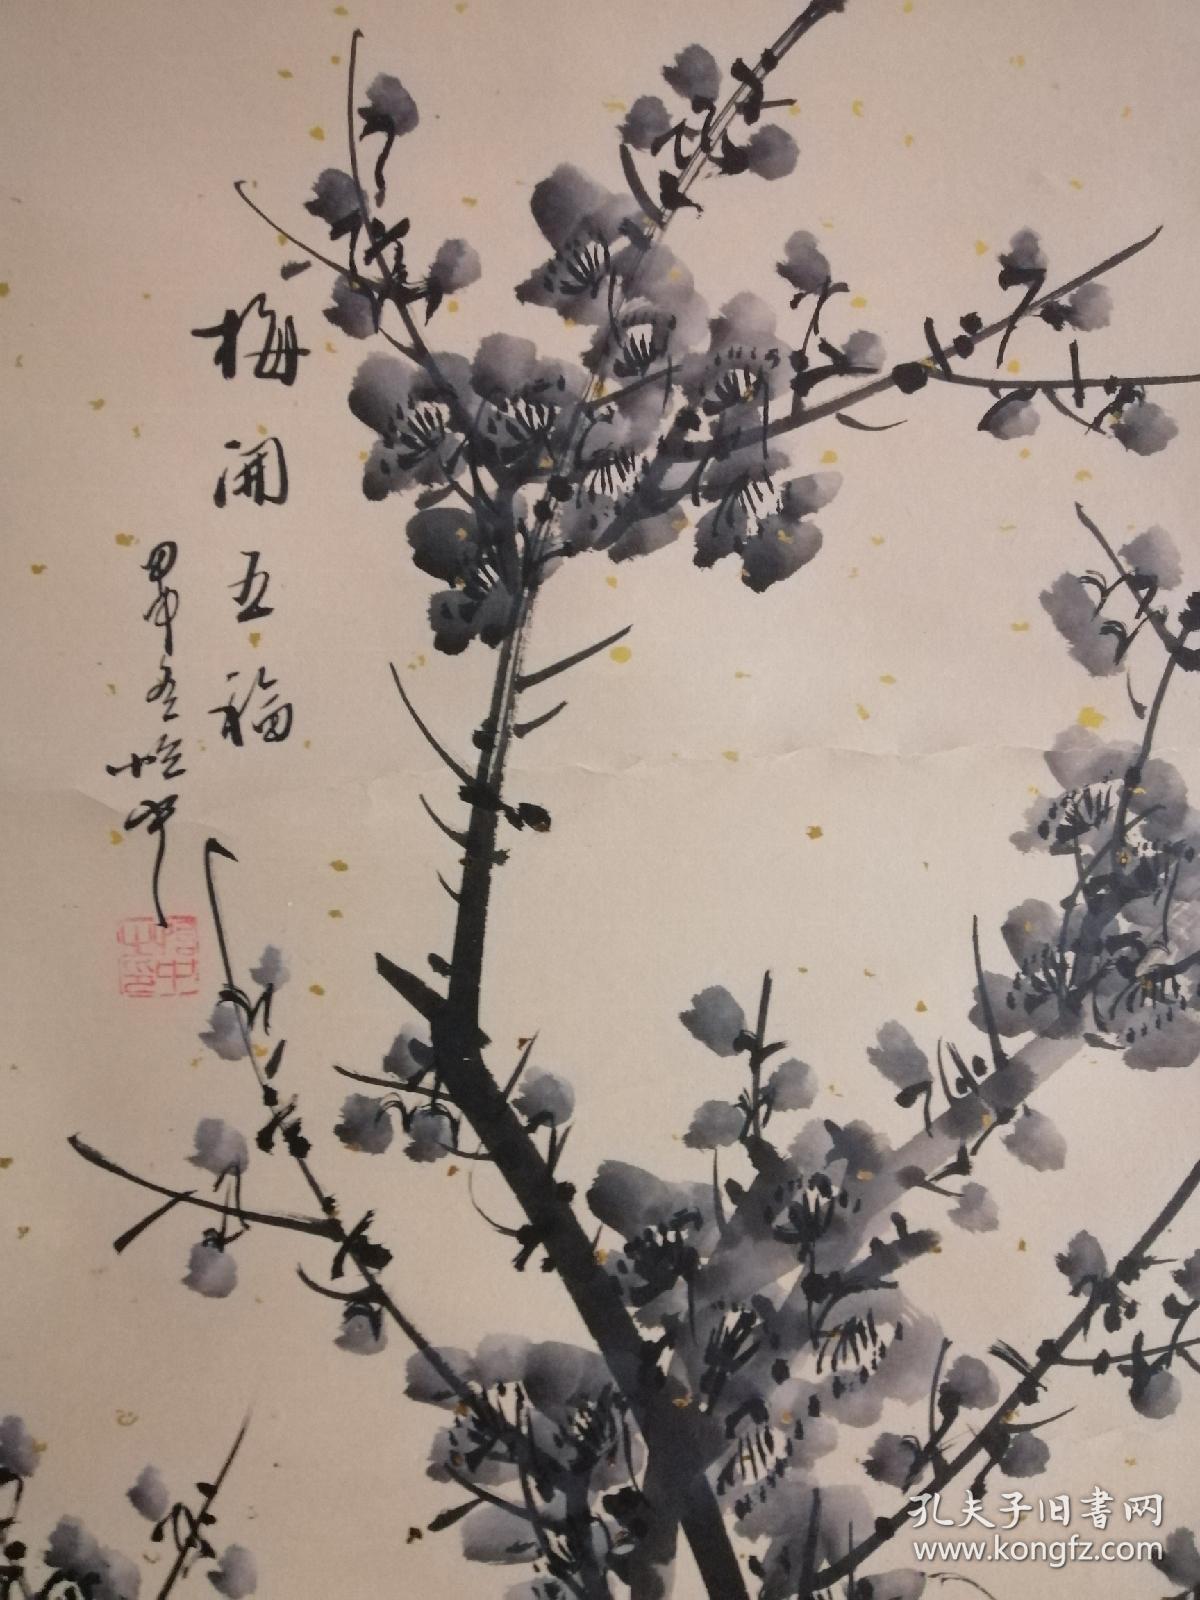 梅開五福
甲申冬
孔夫子旧書网
www.kongfz.com